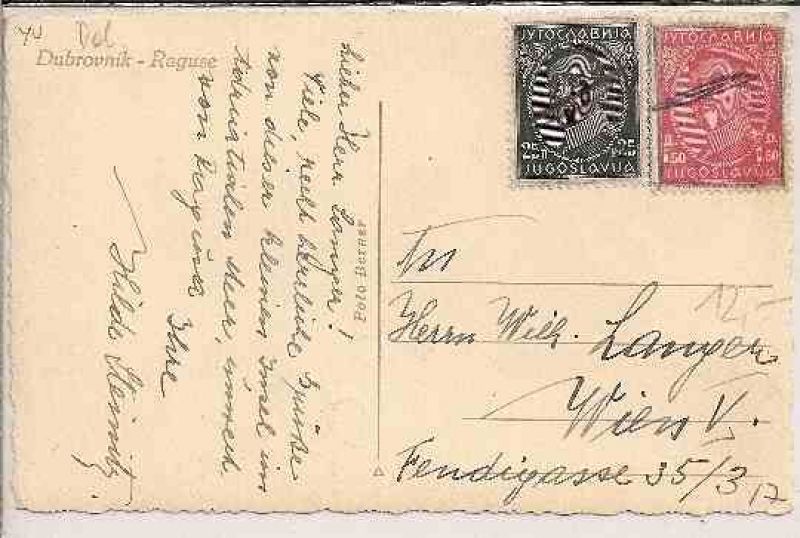 Dol
Dubrovnik - Raguse
Lieber Herr Langer!
Viele, recht herzliche Grüße
von dieser kleinen Insel im
Adriatischen Meer, unweit
von Ragusa
Ihre
Hilde Steinitz.
ЈУГОСЛАВИЈА
25 П 25
JUGOSLAVIJA
ЈУГОСЛАВИЈА
1.50 1.50
JUGOSLAVIJA
An
Herrn Wilh. Langer
Wien V.
Fendigasse 35/3
17
12,-